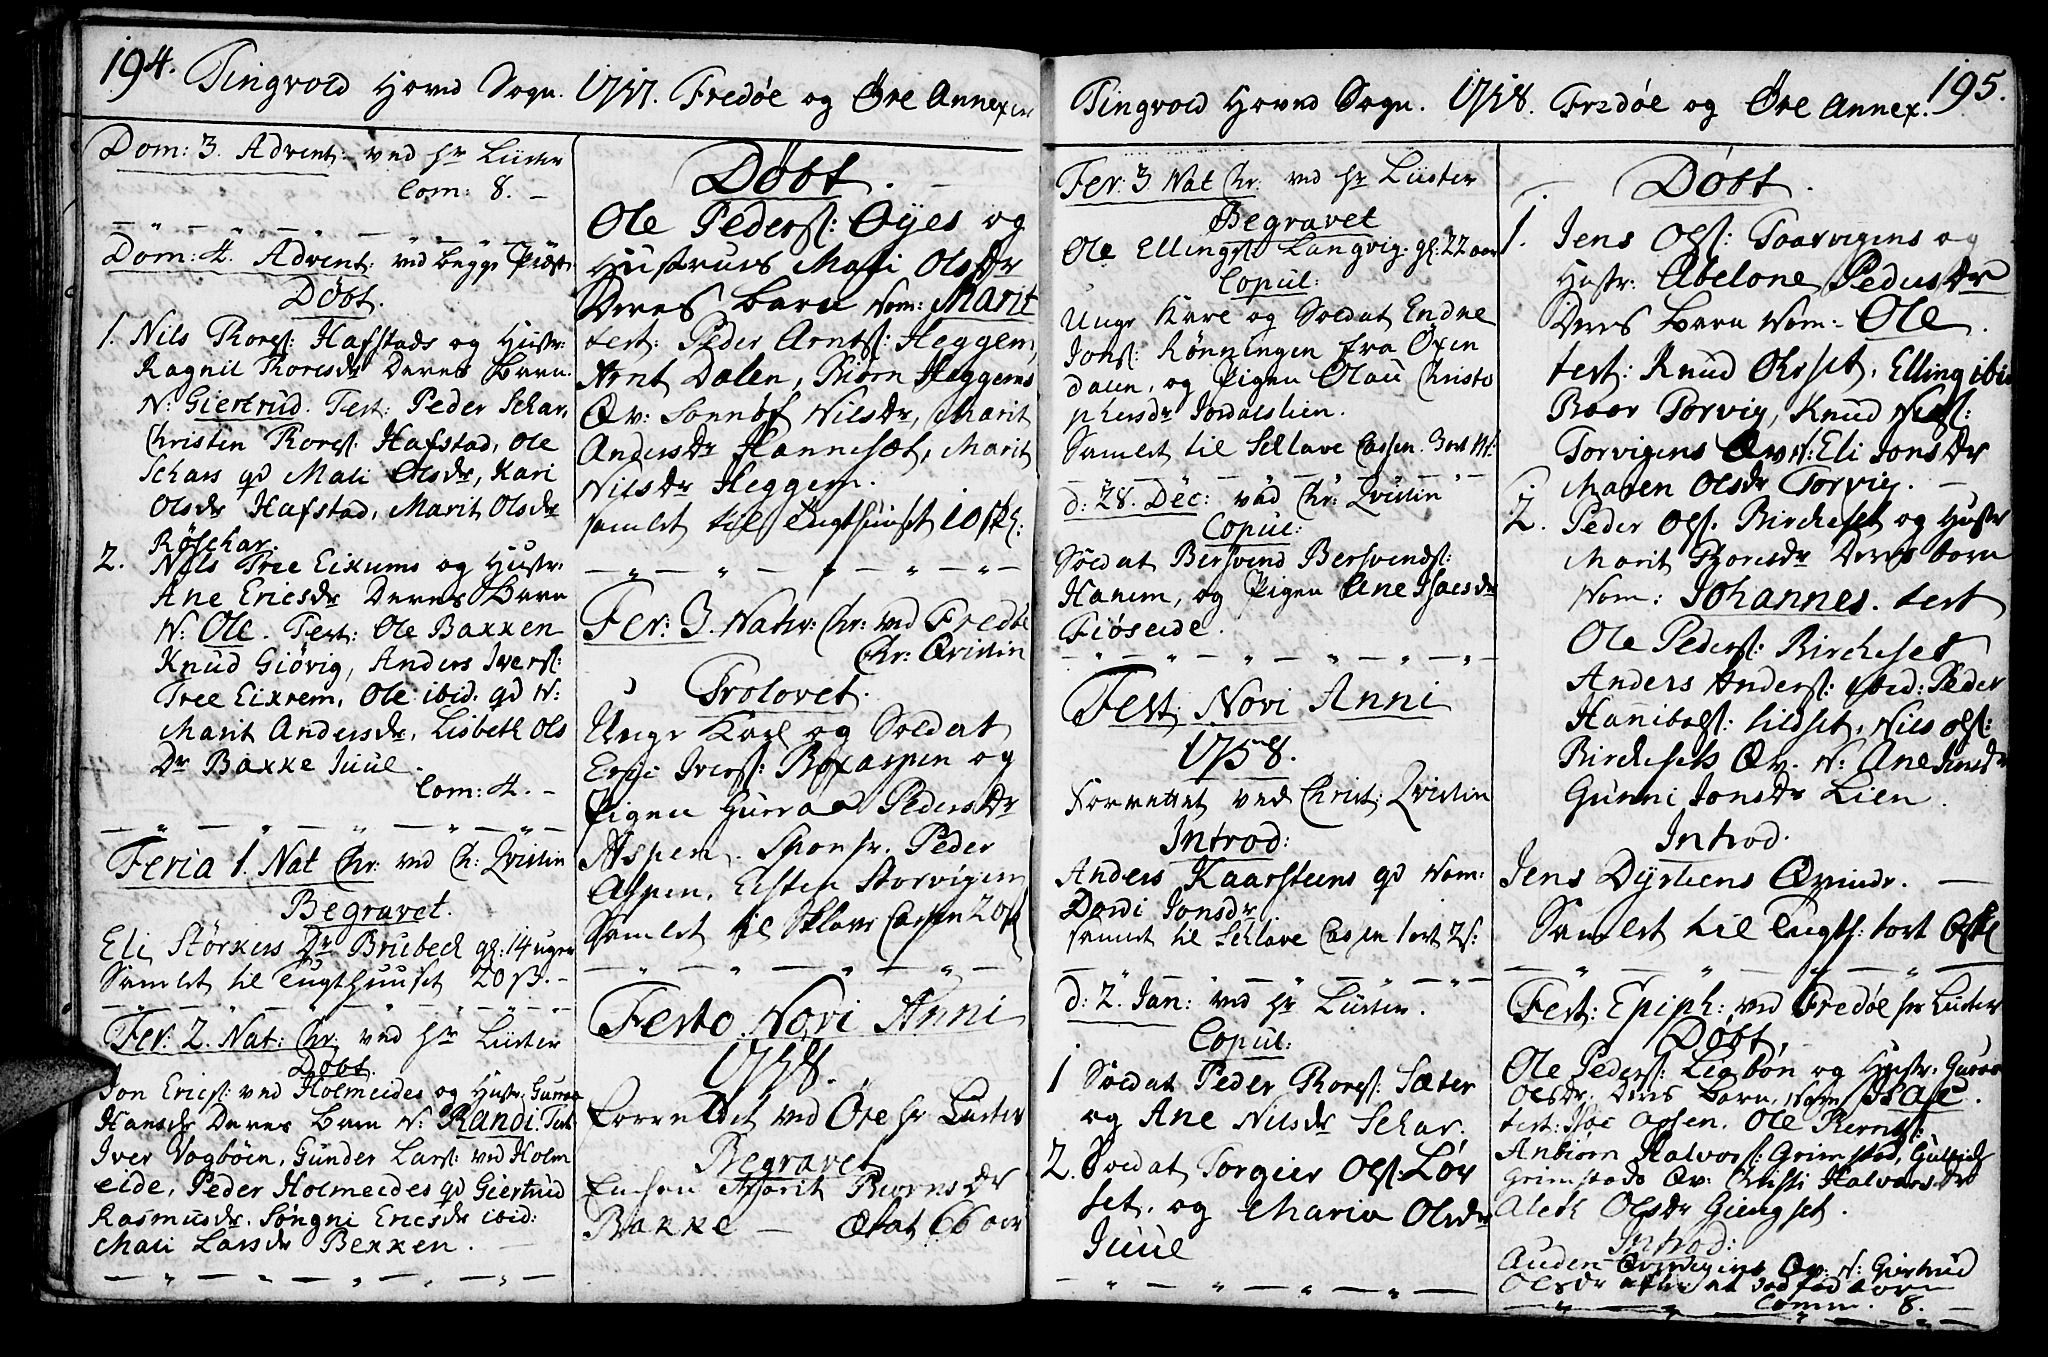 194. Tingvold Hoved Sogn. 1757. Fredøe og Øre Annexer
Dom: 3. Advent: ved Hr Lüster
Com: 8. –
Dom: 4. Advent: ved begge
Døbt.
1. Nils Thores: Hafstads og Hustr:
Ragnil Thoresdr Deres Barn
N: Giertrud. Test: Peder Schar,
Christen Thores: Hafstad, Ole
Schars qd Mali Olsdr, Kari
Olsdr Hafstad, Marit Olsdr
Røschar.
2. Nils Tree Eixums og Hustr:
Ane Ericsdr Deres Barn
N: Ole. Test: Ole Baxxen
Knud Giövig, Anders Ivers:
Tree Eixrem, Ole ibid. qd N:
Marit Andersdr, Lisbeth Ols
Dr Baxke Juul.
Com: 4. –
Feria 1. Nat Chr: ved Ch: Qvistin
Begravet.
Eli Störkers Dr Brubeck gl: 14 uger
Samlet til Tugthuuset 20 s. –
Fer: 2. Nat: Chr. ved Hr Lüster
Døbt.
Jon Erics: ved Holmeides og Hustr: Gurroe
Hansdr Deres Barn N: Randi. Test
Iver Vogböen, Gunder Lars: ved Holm
eide, Peder Holmeides qd Giertrud
Rasmusdr. Söngni Ericsdr ibid:
Mali Larsdr Bexxen.
Døbt.
Ole Peders: Øyes og
Hustrues Mali Olsdr
Deres Barn Nom: Marit
test: Peder Arnts: Heggem,
Arnt Dalen, Biörn Heggems
Qv: Sonnöf Nilsdr, Marit
Andersdr Hannesæt, Marit
Nilsdr Heggem.
samlet til Tugthuuset 10 sk:
Fer: 3. Nativ: Chr: ved Fredöe
Chr: Qvistin
Trolovet.
Unge Karl og Soldat
Eric Ivers: Boxaspen og
Pigen Gurroe Pedersdr
Aspen. Sponsr. Peder
Aspen, Elsten Storvigen
Samlet til Sklave Cassen 20 s
Festo Novi Anni
1758.
Forrettet ved Øre Hr Lüster
Begravet
Enchen Marit Biörnsdr
Baxke — Ætat 66 aar
Tingvold Hoved Sogn. 1758. Fredøe og Øre Annex. 195.
Fer: 3 Nat Chr: ved Hr Lüster
Begravet
Ole Ellings: Langvig. gl: 22 aar
Copul:
Unge Karl og Soldat Endre
Jons: Rönningen fra Öxen
dalen, og Pigen Olau Christo
phersdr Jordalslien.
Samlet til Schlave Cassen. 3 ort
d: 28. Dec: ved Chr: Qvistin
Copul:
Soldat Bersvend Bersvends:
Hanem, og Pigen Ane Isacsdr
Fiöseide.
Fest: Novi Anni
1758.
Forrettet ved Christ: Qvistin
Introd:
Anders Kaarsteens qd Nom:
Dordi Jonsdr
samlet til Schlave Cassen 1 ort 2 s:
d: 2. Jan: ved Hr Lüster.
Copul:
1 Soldat Peder Thores: Sæter
og Ane Nilsdr Schar.
2. Soldat Torgier Ols: Lör
set, og Maria Olsdr
Juul
Døbt.
1. Jens Ols: Taarvigens og
Hustr: Abelone Pedersdr
Deres Barn Nom: Ole.
test: Knud Ohrset, Elling ibid
Roar Torvig, Knud Niels:
Torvigens Qv N: Eli Jonsdr
Maren Olsdr Torvig.
2. Peder Ols. Bircheset og Hustr
Marit Thoresdr Deres barn
Nom: Johannes. test
Ole Peders: Bircheset
Anders Anders: ibid: Peder
Hannibals: Lidset, Nils Ols:
Birchesets Qv. N: Ane Jensdr
Gunni Jonsdr Lien.
Introd.
Jens Dyrliens Qvinde. —
Samlet til Tugth: 1 ort
Fest: Epiph: ved Fredøe Hr Lüster
Døbt.
Ole Peders: Legbön og Hustr: Guroe
Olsdr. Deres Barn, Nom Isac.
test: Isac Aspen. Ole Bernts:
Anbiörn Halvors: Grimstad, Gulbiör
Grimstads Qv: Christi Halvorsdr
Aleth Olsdr Giengset.
Introd:
Auden Qv: N: Giertrud
Olsdr
Comm. 8. —